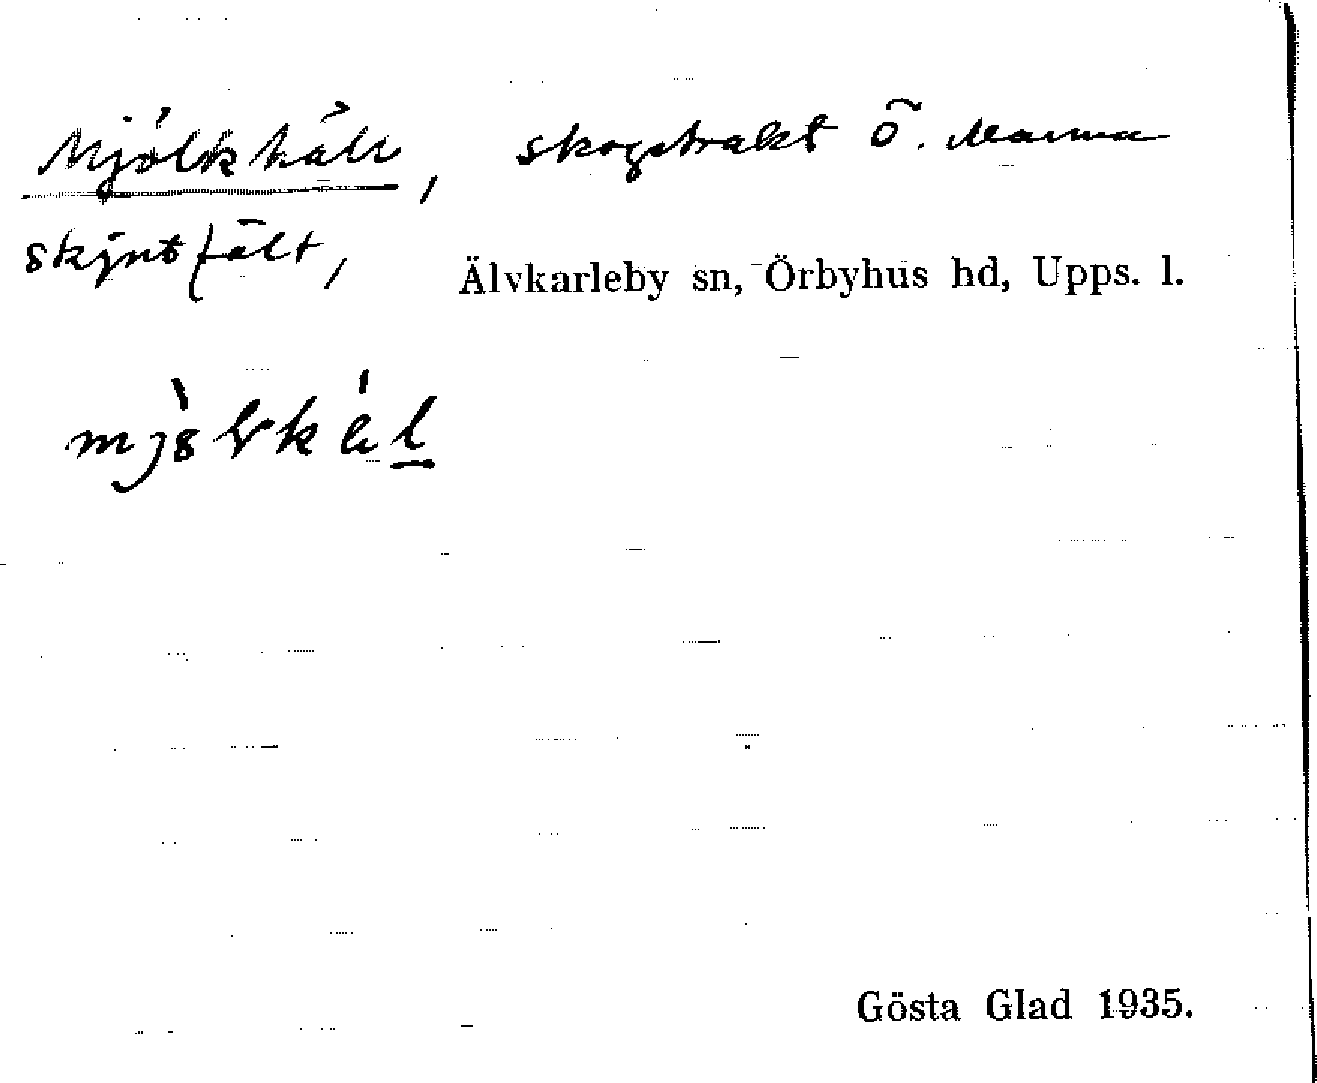 Mjölkhäll, skogstrakt Ö. Marma
skjutfält,
Älvkarleby sn, Örbyhus hd, Upps. l.
Gösta Glad 1935.